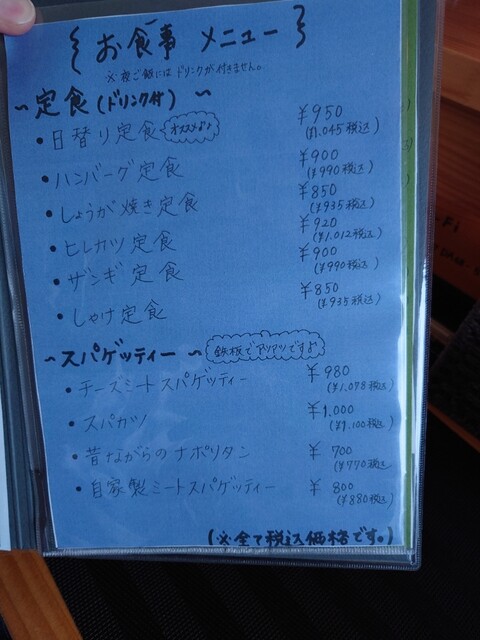 お食事 メニュー
※夜ご飯にはドリンクが付きません。
～定食(ドリンク付)～
・日替り定食 オススメ♪♪ ¥950
(¥1.045税込)
・ハンバーグ定食 ¥900
(¥990税込)
・しょうが焼き定食 ¥850
(¥935税込)
・ヒレカツ定食 ¥920
(¥1.012税込)
・ザンギ定食 ¥900
(¥990税込)
・しゃけ定食 ¥850
(¥935税込)
～スパゲッティー～ 鉄板でアツアツですよ
・チーズミートスパゲッティー ¥980
(¥1.078税込)
・スパカツ ¥1.000
(¥1.100税込)
・昔ながらのナポリタン ¥700
(¥770税込)
・自家製ミートスパゲッティー ¥800
(¥880税込)
(※全て税込価格です。)